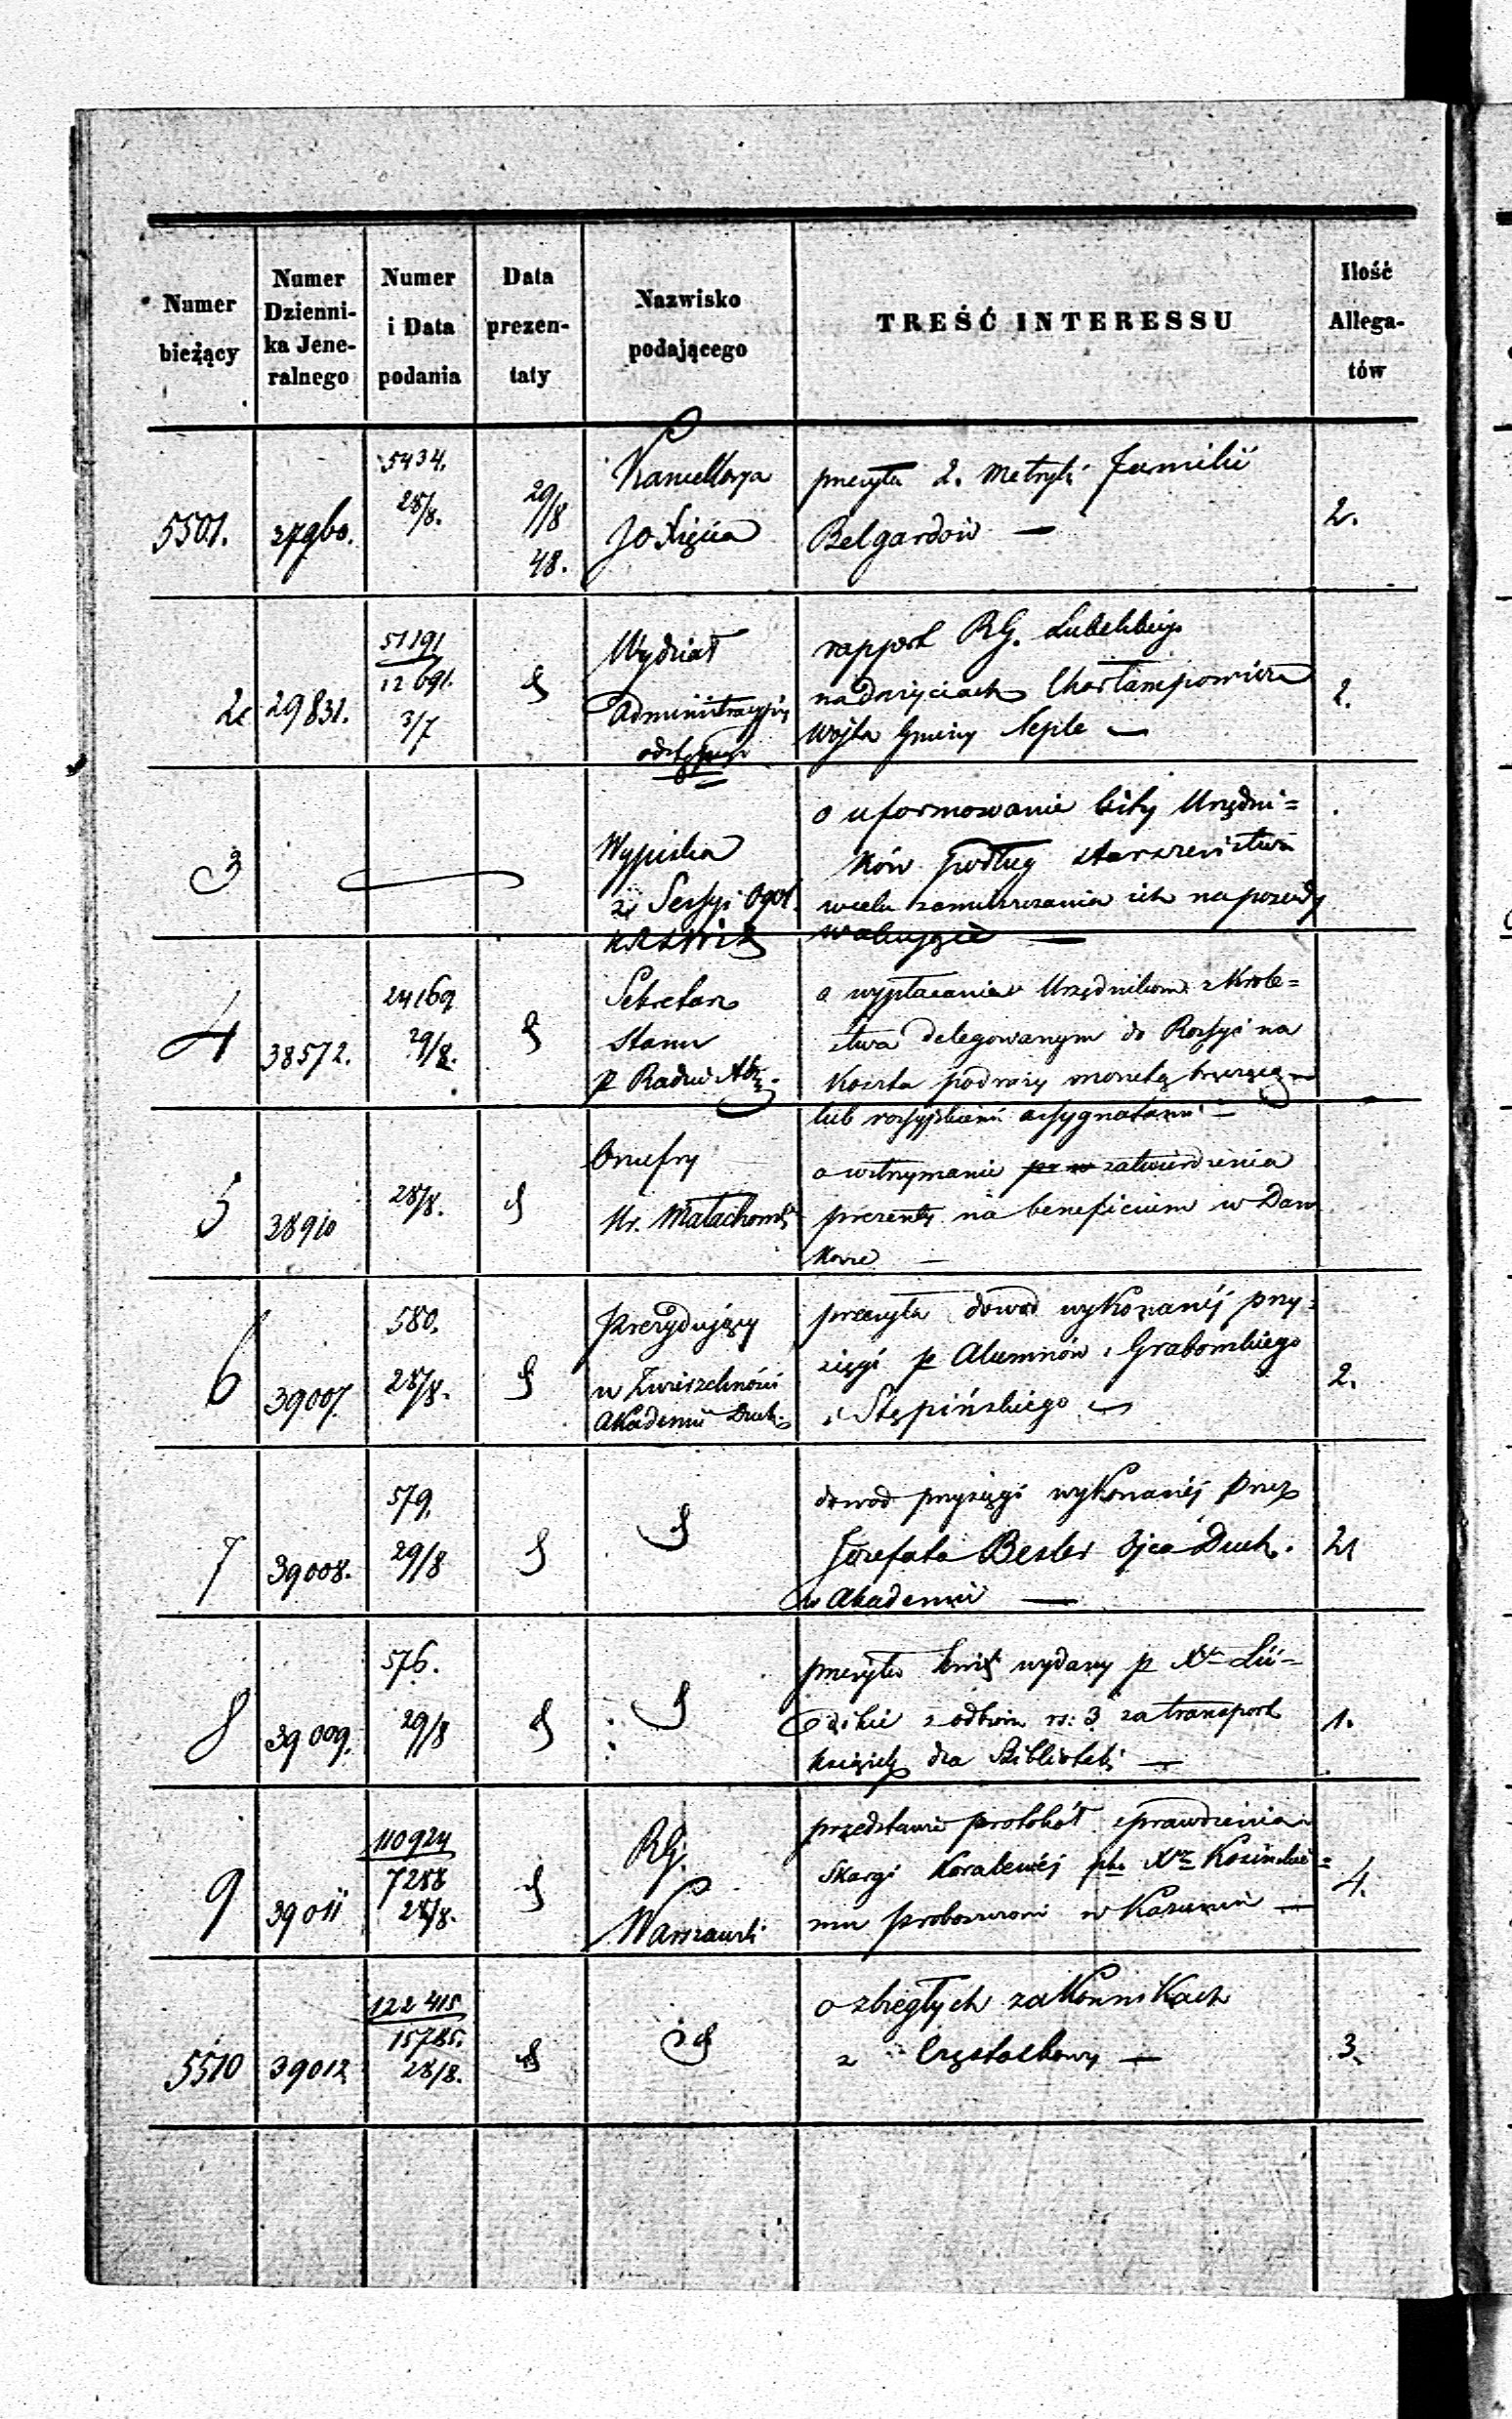 Numer bieżący
Numer Dzienni-ka Jene-ralnego
Numer i Data podania
Data prezen-taty
Nazwisko podającego
TREŚĆ INTERESSU
Ilość Allega-tów
5501.
5434.
28/8.
29/8
48.
Kancellarya
JO Xięcia
przesyła 2. Metryki familii
Belgardów —
2.
2
29831.
51191
12691.
3/7
Wydział
Administracyjny
rapport RG. Lubelskiego
o nadużyciach Charłampowicza
Wójta Gminy Neple —
2.
3
Wypiska
z Sessyi Ogol.
o uformowanie listy Urzędni=
ków podług starszeństwa
w celu zamieszczania ich na posady
wakujące —
4
38572.
24169
29/8.
Sekretarz
Stanu
p Radzie
o wypłacanie Urzędnikom z Króle=
stwa delegowanym do Rossyi na
koszta podróży monetą brzęczącą
lub rossyjskiemi assygnatami —
5
38910
28/8.
Onufry
Hr. Małachowski
o wstrzymanie zatwierdzenia
prezenty na beneficium w Dan
kowie —
6
39007.
580.
28/8.
Prezydujący
w Zwierzchności
Akademii Duch.
przesyła dowód wykonanéj przy-
sięgi p Alumnów, Grabowskiego
i Stępińskiego —
2.
7
39008.
579.
29/8
dowod przysięgi wykonanéj przez
Józefata Besler Ojca Duch.
w Akademii —
2
8
39009.
576.
29/8
przesyła kwit wydany p Xa
z odbioru rs: 3 za transport
książek dla Biblioteki —
1.
9
39011
110924
7288
28/8.
RG.
Warszawski
przedstawia protokół sprawdzenia
Skargi
mu proboszczowi w Kazuniu —
4.
5510
39012
122415
15785.
28/8.
o zbiegłych zakonnikach
z Częstochowy —
3.